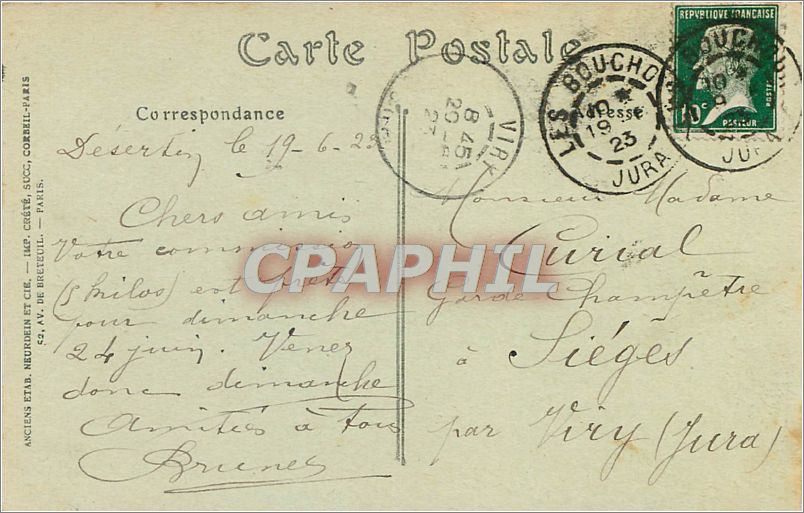 Carte Postale
REPUBLIQUE FRANÇAISE
10c
POSTES
PASTEUR
LES BOUCHO
19
23
JURA
VIRY
8 45
20 - 6
23
Correspondance
Adresse
Désertin le 19-6-23
Chers amis
Votre commission
(5 kilos) est prête
pour dimanche
24 juin. Venez
donc dimanche
Amitiés à tous
Brunet
Monsieur Madame
Curial
Garde Champêtre
à Siéges
par Viry (Jura)
ANCIENS ETAB. NEURDEIN ET CIE. — IMP. CRÉTÉ, SUCC, CORBEIL-PARIS
52, AV. DE BRETEUIL. — PARIS.
CPAPHIL